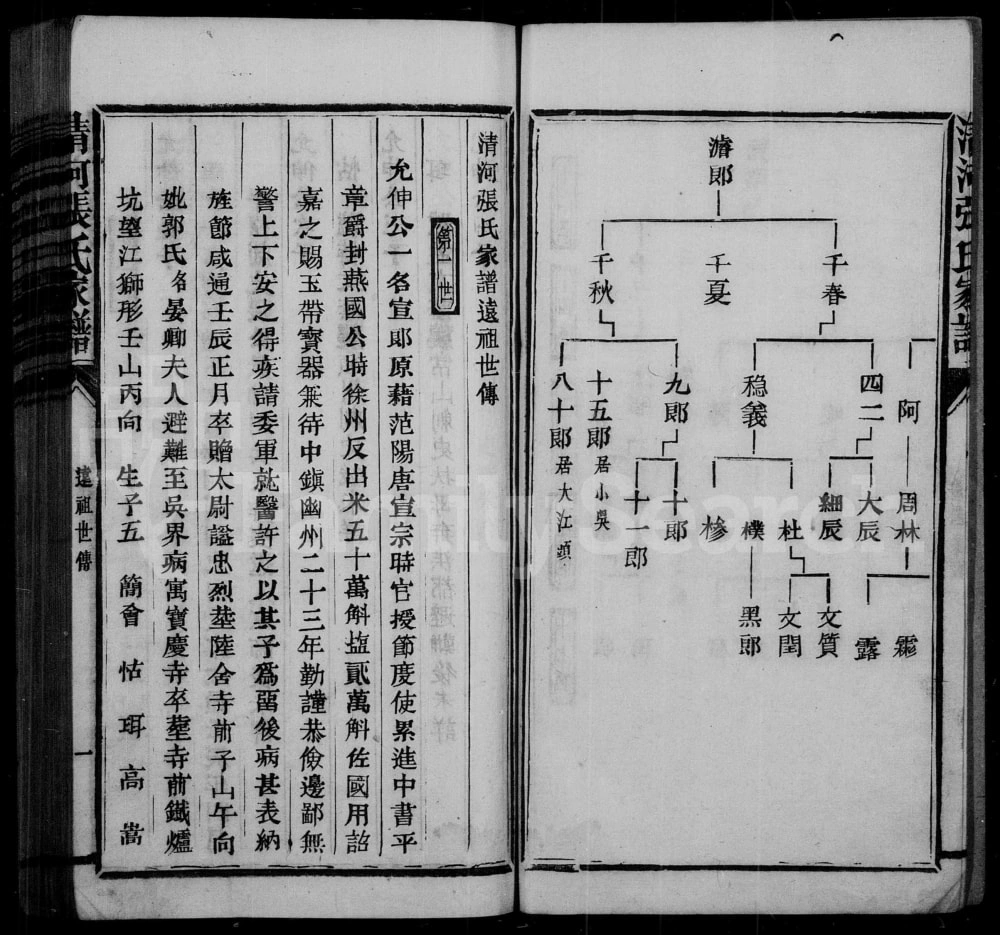 清河張氏家譜
濬郎
千春
千夏
千秋
阿
四二
稳義
九郎
十五郎居小吳
八十郎居大江頭
周林
大辰
細辰
杜
樸
椮
十郎
十一郎
露
文質
文閏
黑郎
清河張氏家譜遠祖世傳
第一世
允伸公一名宣郎原藉范陽唐宣宗時官授節度使累進中書平
章爵封燕國公時徐州反出米五十萬斛塩貳萬斛佐國用詔
嘉之賜玉帶寶器兼侍中鎭幽州二十三年勤謹恭儉邊鄙無
警上下安之得疾請委軍就醫許之以其子爲畱後病甚表納
旌節咸通壬辰正月卒贈太尉謚忠烈塟陸舍寺前子山午向
妣郭氏名晏卿夫人避難至吳界病寓寶慶寺卒塟寺前鐵爐
坑望江獅形壬山丙向 生子五 簡會 怙 珥 高 嵩
清河張氏家譜
遠祖世傳
一
FamilySearch